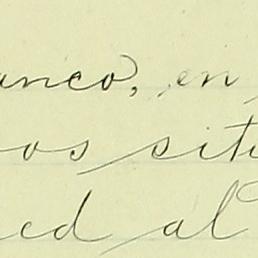 anco, en
os situ
ed al